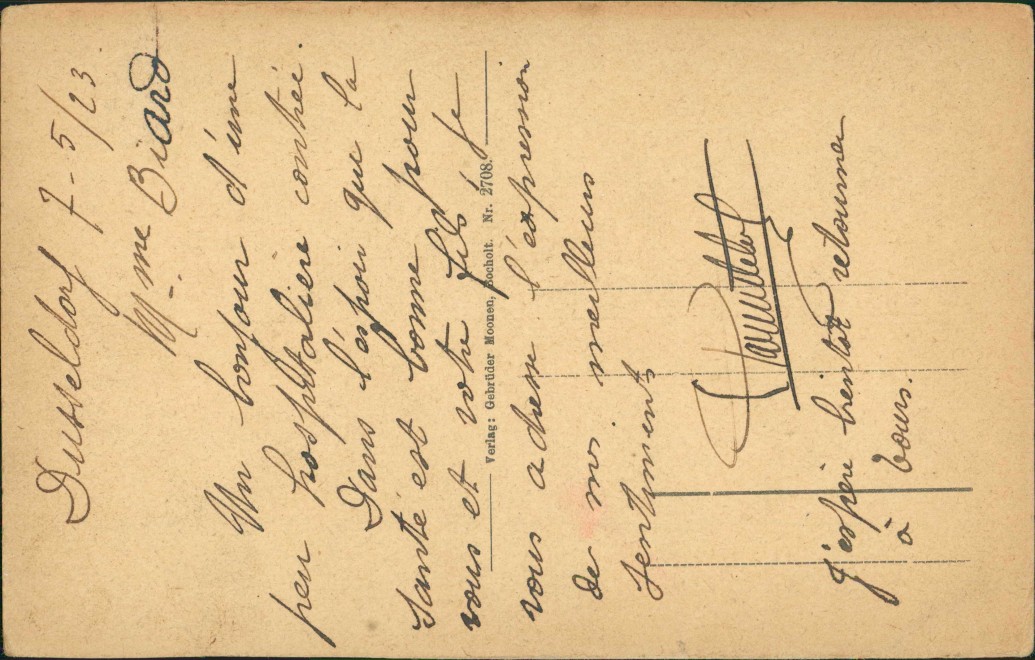 Dusseldorf 7-5/23
Mme Biard
Un bonjour d'une
peu hospitalière contrée.
Dans l'espoir que la
santé est bonne pour
vous et votre fils je
vous adresse l'expression
de mes meilleurs
sentiments
J'espère bientôt retourner
à Tours.
Verlag: Gebrüder Moonen, Bocholt. Nr. 2708.